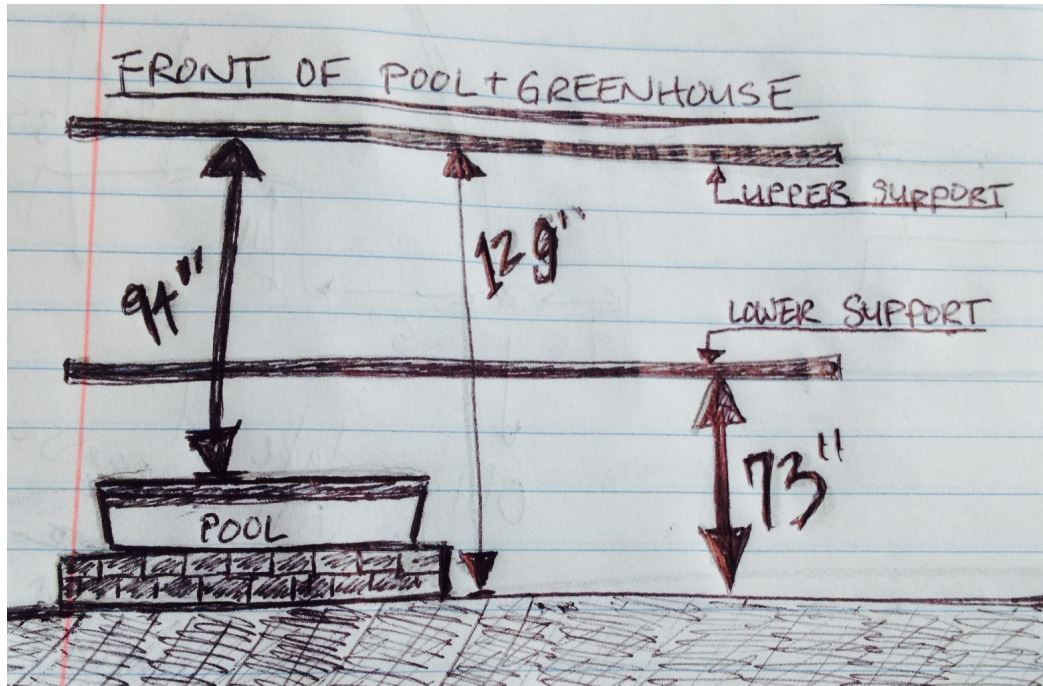 FRONT OF POOL + GREENHOUSE
UPPER SUPPORT
129"
94"
LOWER SUPPORT
73"
POOL